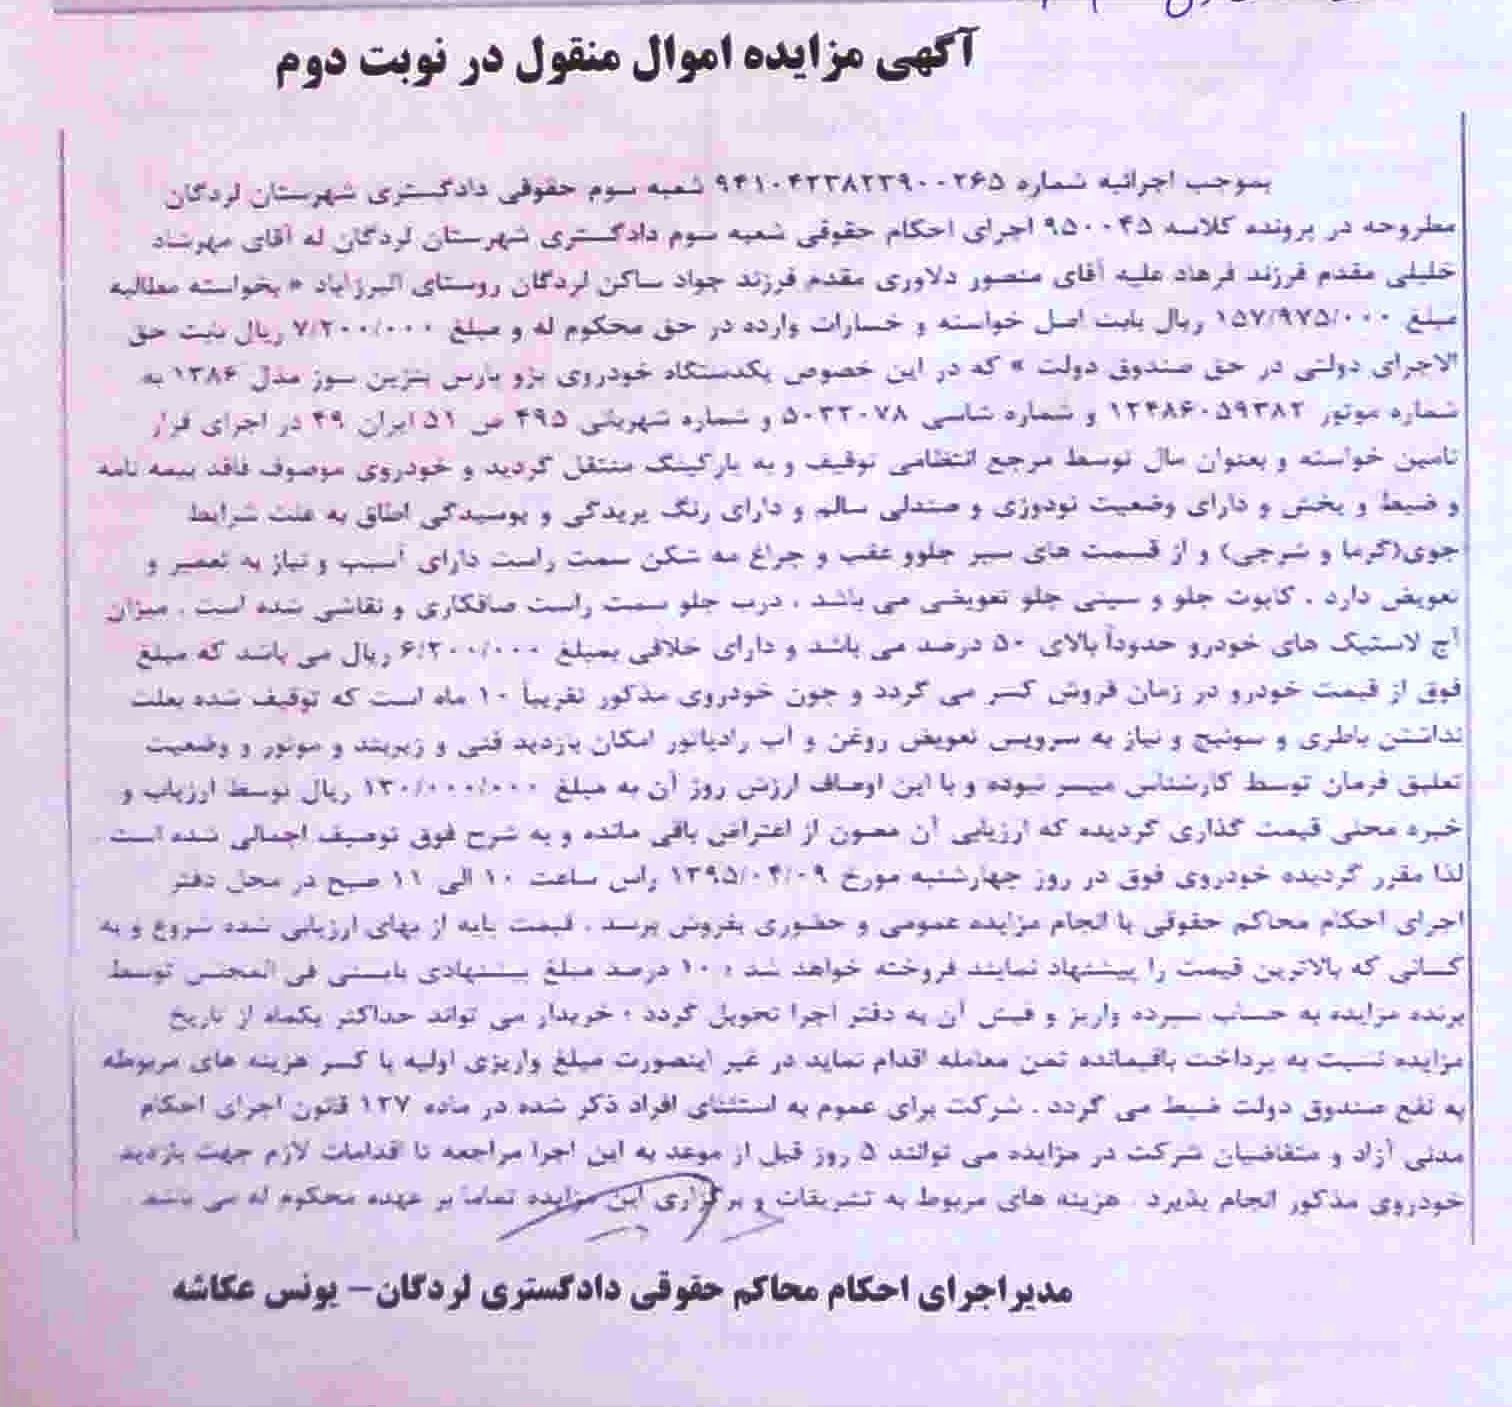 آگهی مزایده اموال منقول در نوبت دوم
بموجب اجرائیه شماره ۹۴۱۰۴۲۳۸۲۳۹۰۰۲۶۵ شعبه سوم حقوقی دادگستری شهرستان لردگان
مطروحه در پرونده کلاسه ۹۵۰۰۴۵ اجرای احکام حقوقی شعبه سوم دادگستری شهرستان لردگان له آقای مهرشاد
خلیلی مقدم فرزند فرهاد علیه آقای منصور دلاوری مقدم فرزند جواد ساکن لردگان روستای البرزآباد « بخواسته مطالبه
مبلغ ۱۵۷/۹۷۵/۰۰۰ ریال بابت اصل خواسته و خسارات وارده در حق محکوم له و مبلغ ۷/۲۰۰/۰۰۰ ریال بابت حق
الاجرای دولتی در حق صندوق دولت » که در این خصوص یکدستگاه خودروی پژو پارس بنزین سوز مدل ۱۳۸۶ به
شماره موتور ۱۲۴۸۶۰۵۹۳۸۲ و شماره شاسی ۵۰۳۲۰۷۸ و شماره شهربانی ۴۹۵ ص ۵۱ ایران ۴۹ در اجرای قرار
تامین خواسته و بعنوان مال توسط مرجع انتظامی توقیف و به پارکینگ منتقل گردید و خودروی موصوف فاقد بیمه نامه
و ضبط و پخش و دارای وضعیت تودوزی و صندلی سالم و دارای رنگ پریدگی و پوسیدگی اطاق به علت شرایط
جوی(گرما و شرجی) و از قسمت های سپر جلوو عقب و چراغ مه شکن سمت راست دارای آسیب و نیاز به تعمیر و
تعویض دارد . کاپوت جلو و سینی جلو تعویضی می باشد . درب جلو سمت راست صافکاری و نقاشی شده است . میزان
آج لاستیک های خودرو حدوداً بالای ۵۰ درصد می باشد و دارای خلافی بمبلغ ۶/۲۰۰/۰۰۰ ریال می باشد که مبلغ
فوق از قیمت خودرو در زمان فروش کسر می گردد و چون خودروی مذکور تقریباً ۱۰ ماه است که توقیف شده بعلت
نداشتن باطری و سوئیچ و نیاز به سرویس تعویض روغن و آب رادیاتور امکان بازدید فنی و زیربند و موتور و وضعیت
تعلیق فرمان توسط کارشناس میسر نبوده و با این اوصاف ارزش روز آن به مبلغ ۱۳۰/۰۰۰/۰۰۰ ریال توسط ارزیاب و
خبره محلی قیمت گذاری گردیده که ارزیابی آن مصون از اعتراض باقی مانده و به شرح فوق توصیف اجمالی شده است .
لذا مقرر گردیده خودروی فوق در روز چهارشنبه مورخ ۱۳۹۵/۰۴/۰۹ راس ساعت ۱۰ الی ۱۱ صبح در محل دفتر
اجرای احکام محاکم حقوقی با انجام مزایده عمومی و حضوری بفروش برسد . قیمت پایه از بهای ارزیابی شده شروع و به
کسانی که بالاترین قیمت را پیشنهاد نمایند فروخته خواهد شد ، ۱۰ درصد مبلغ پیشنهادی بایستی فی المجلس توسط
برنده مزایده به حساب سپرده واریز و فیش آن به دفتر اجرا تحویل گردد ، خریدار می تواند حداکثر یکماه از تاریخ
مزایده نسبت به پرداخت باقیمانده ثمن معامله اقدام نماید در غیر اینصورت مبلغ واریزی اولیه با کسر هزینه های مربوطه
به نفع صندوق دولت ضبط می گردد . شرکت برای عموم به استثنای افراد ذکر شده در ماده ۱۲۷ قانون اجرای احکام
مدنی آزاد و متقاضیان شرکت در مزایده می توانند ۵ روز قبل از موعد به این اجرا مراجعه تا اقدامات لازم جهت بازدید
خودروی مذکور انجام پذیرد . هزینه های مربوط به تشریفات و برگزاری این مزایده تماما بر عهده محکوم له می باشد .
مدیر اجرای احکام محاکم حقوقی دادگستری لردگان– یونس عکاشه